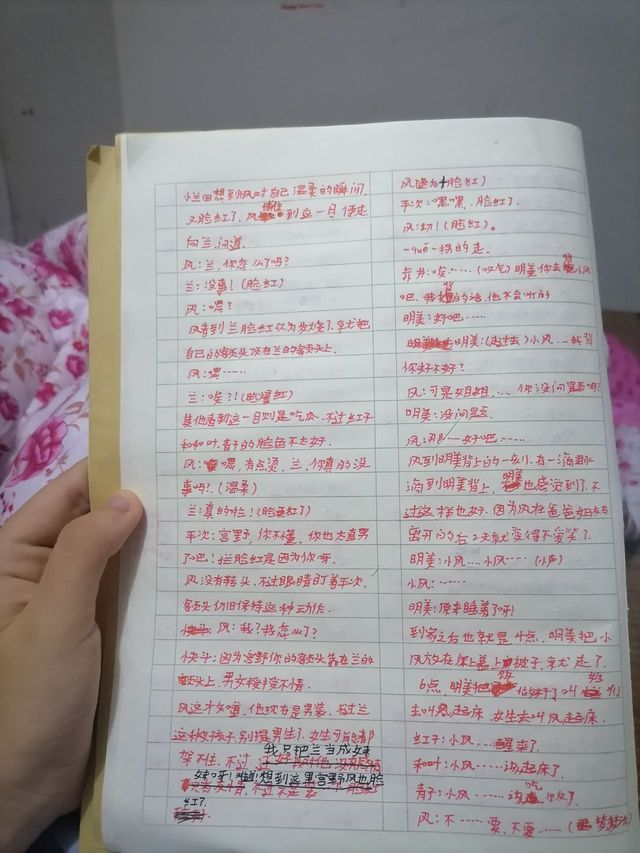 兰回想到风对自己温柔的瞬间,
又脸红了,风看到这一目便走
向兰,问道.
风:兰,你怎么了吗?
兰:没事!(脸红)
风:嗯?
风看到兰脸红以为发烧了,就把
自己的额头顶在兰的额头上.
风:嗯……
兰:唉?!(脸爆红)
其他看到这一目则是吃瓜.不过红子
和和叶.青子的脸色不太好.
风:嗯,有点烫.兰,你真的没
事吗?.(温柔)
兰:真的恒!(脸红)
平次:宫野,你不懂,你也太直男
了吧!拦脸红是因为你呀.
风没有转头,不过眼睛盯着平次,
额头仍旧保持这种动作.
风:我?我怎么了?
快斗:因为宫野你的额头靠在兰的
额头上,男女授受不情.
风这才知道,他现在是男装,不过兰
这种好孩子别提男生了,女生可能都
架不住,不过 我只把兰当成妹
妹呀!想到这里宫野风也脸
红了.
脸红)
平次:嘿嘿,脸红了.
风:切!(脸红)。
一qué一拐的走.
赤井:唉……(叹气)明美你去背小风
吧,我背的话,他不会听的
明美:好吧……
明美:(走过去)小风……我背
你好不好?
风:可是姐姐,……你没问题吗?
明美:没问题
风:那……好吧……
风到明美背上的一刻,有一滴泪水
滴到明美背上,明美也感活到了,不
过这样也好,因为风在爸爸妈妈
离开的后2天就变得不爱笑了.
明美:小风……小风……(小声)
小风:……
明美:原来睡着了呀!
到家之后也就是4点,明美把小
风放在床上盖上被子,就走了.
6点,明美把饭做好了叫 们
去叫 起床,女生去叫风起床.
红子:小风……醒来了.
和叶:小风……该起床了.
青子:小风……该吃饭了.
风:不……要,不要……(